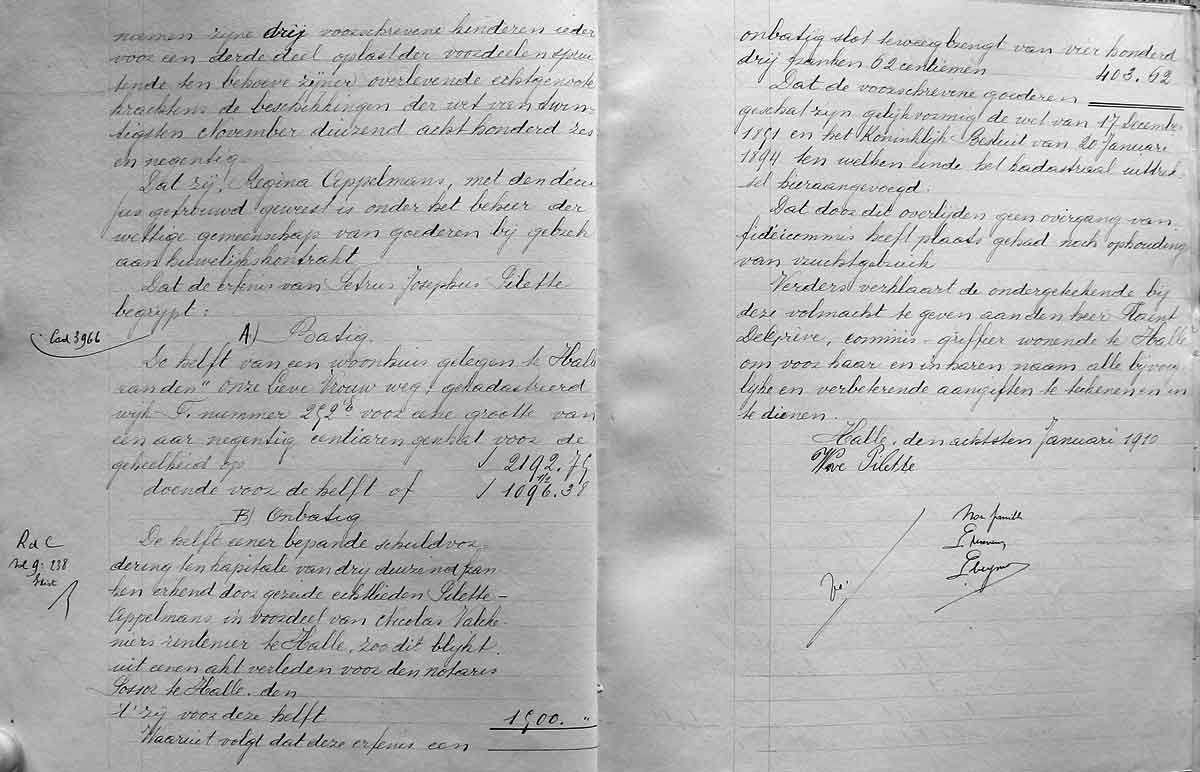 namen zijne drij voorschrevene kinderen ieder
voor een derde deel oplast der voordeelen sprui
tende ten behoeve zijner overlevende echtgenoote
krachtens de beschikkingen der wet van twin
tigsten November duizend acht honderd zes
en negentig
Dat zij, Regina Appelmans, met den decu
jus getrouwd geweest is onder het beheer der
wettige gemeenschap van goederen bij gebrek
aan huwelijkskontrakt
Dat de erfenis van Petrus Josephus Pilette
begrijpt :
Cad 3966
A) Batig.
De helft van een woonhuis gelegen te Halle
aan den "Onze Lieve Vrouw weg, gekadastreerd
wijk F. nummer 292 b voor eene grootte van
een aar negentig centiaren geschat voor de
geheelheid op 2192.75
doende voor de helft of 1096.38
B) Onbatig
RdC
De helft eener bepande schuldvor-
dering ten kapitale van drij duizend fran
ken erkend door gezeide echtlieden Pilette-
Appelmans in voordeel van Nicolas Valcke-
niers rentenier te Halle, zoo dit blijkt
uit eenen akt verleden voor den notaris
te Halle, den
't zij voor deze helft 1500. "
Waaruit volgt dat deze erfenis een
onbatig slot teweegbrengt van vier honderd
drij franken 62 centiemen 403.62
Dat de voorschrevene goederen
geschat zijn gelijkvormig de wet van 17 December
1851 en het Koninklijk-Besluit van 20 Januari
1894 ten welken einde het kadastraal uittrek
sel hieraangevoegd.
Dat door dit overlijden geen overgang van
fideicommis heeft plaats gehad noch ophouding
van vruchtgebruik
Verders verklaart de ondergetekende bij
deze volmacht te geven aan den heer Florent
Delgrève, commis-griffier wonende te Halle
om voor haar en in haren naam alle bijvoeg
lijke en verbeterende aangiften te tekenen en in
te dienen.
Halle, den achtsten Januari 1910
Wwe Pilette